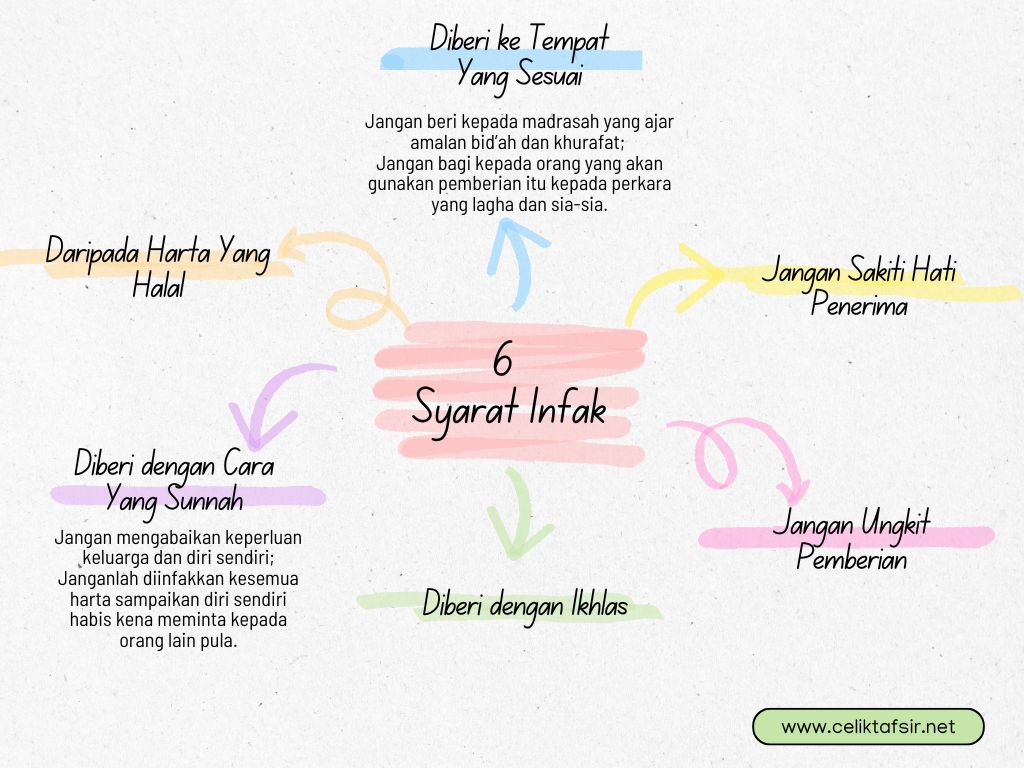 Diberi ke Tempat
Yang Sesuai
Jangan beri kepada madrasah yang ajar
amalan bid'ah dan khurafat;
Jangan bagi kepada orang yang akan
gunakan pemberian itu kepada perkara
yang lagha dan sia-sia.
Daripada Harta Yang
Halal
Jangan Sakiti Hati
Penerima
6
Syarat Infak
Diberi dengan Cara
Yang Sunnah
Jangan mengabaikan keperluan
keluarga dan diri sendiri;
Janganlah diinfakkan kesemua
harta sampaikan diri sendiri
habis kena meminta kepada
orang lain pula.
Jangan Ungkit
Pemberian
Diberi dengan Ikhlas
www.celiktafsir.net